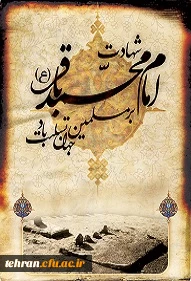 شهادت
امام محمد باقر (ع)
بر مسلمین جهان تسلیت باد
tehran.cfu.ac.ir